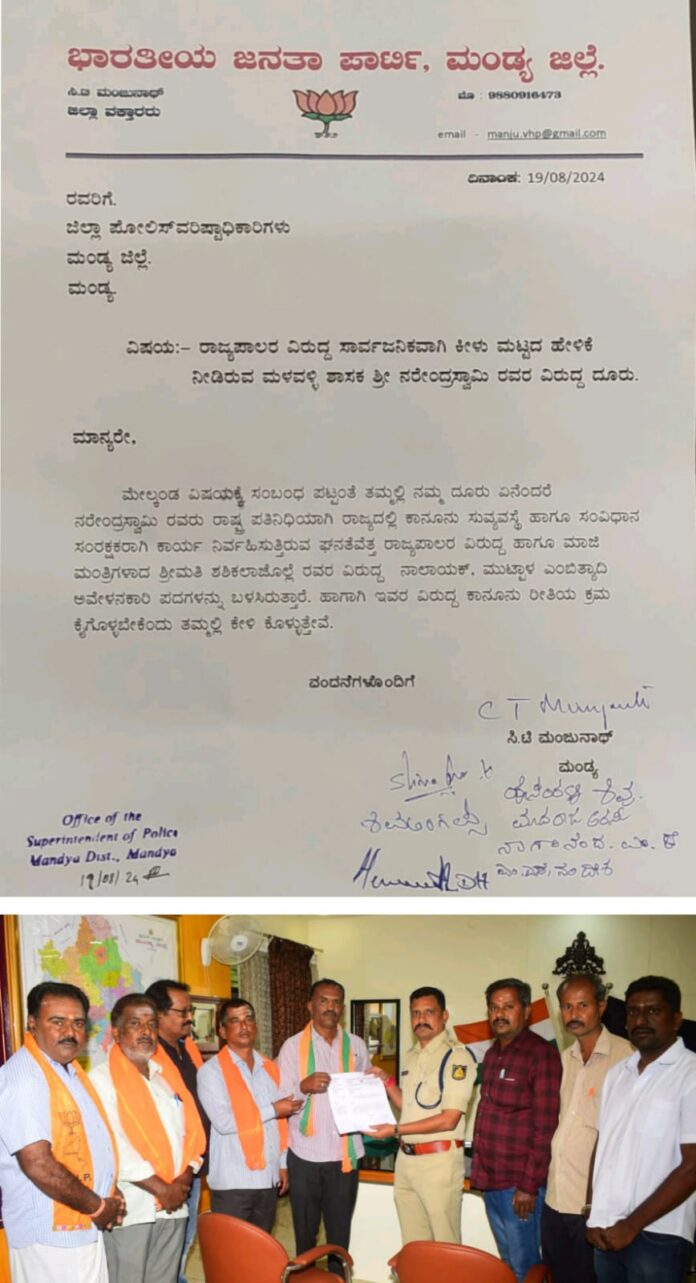 ಭಾರತೀಯ ಜನತಾ ಪಾರ್ಟಿ, ಮಂಡ್ಯ ಜಿಲ್ಲೆ.
ಸಿ.ಟಿ ಮಂಜುನಾಥ್
ಜಿಲ್ಲಾ ವಕ್ತಾರರು
ಮೊ : 9880916473
email - manju.vhp@gmail.com
ದಿನಾಂಕ: 19/08/2024
ರವರಿಗೆ.
ಜಿಲ್ಲಾ ಪೋಲಿಸ್‌ವರಿಷ್ಟಾಧಿಕಾರಿಗಳು
ಮಂಡ್ಯ ಜಿಲ್ಲೆ.
ಮಂಡ್ಯ.
ವಿಷಯ:- ರಾಜ್ಯಪಾಲರ ವಿರುದ್ದ ಸಾರ್ವಜನಿಕವಾಗಿ ಕೀಳು ಮಟ್ಟದ ಹೇಳಿಕೆ
ನೀಡಿರುವ ಮಳವಳ್ಳಿ ಶಾಸಕ ಶ್ರೀ ನರೇಂದ್ರಸ್ವಾಮಿ ರವರ ವಿರುದ್ದ ದೂರು.
ಮಾನ್ಯರೇ,
ಮೇಲ್ಕಂಡ ವಿಷಯಕ್ಕೆ ಸಂಬಂಧ ಪಟ್ಟಂತೆ ತಮ್ಮಲ್ಲಿ ನಮ್ಮ ದೂರು ಏನೆಂದರೆ
ನರೇಂದ್ರಸ್ವಾಮಿ ರವರು ರಾಷ್ಟ್ರ ಪತಿನಿಧಿಯಾಗಿ ರಾಜ್ಯದಲ್ಲಿ ಕಾನೂನು ಸುವ್ಯವಸ್ಥೆ ಹಾಗೂ ಸಂವಿಧಾನ
ಸಂರಕ್ಷಕರಾಗಿ ಕಾರ್ಯ ನಿರ್ವಹಿಸುತ್ತಿರುವ ಘನತೆವೆತ್ತ ರಾಜ್ಯಪಾಲರ ವಿರುದ್ದ ಹಾಗೂ ಮಾಜಿ
ಮಂತ್ರಿಗಳಾದ ಶ್ರೀಮತಿ ಶಶಿಕಲಾಜೊಲ್ಲೆ ರವರ ವಿರುದ್ದ ನಾಲಾಯಕ್, ಮುಟ್ಟಾಳ ಎಂಬಿತ್ಯಾದಿ
ಅವೇಳನಕಾರಿ ಪದಗಳನ್ನು ಬಳಸಿರುತ್ತಾರೆ. ಹಾಗಾಗಿ ಇವರ ವಿರುದ್ದ ಕಾನೂನು ರೀತಿಯ ಕ್ರಮ
ಕೈಗೊಳ್ಳಬೇಕೆಂದು ತಮ್ಮಲ್ಲಿ ಕೇಳಿ ಕೊಳ್ಳುತ್ತೇವೆ.
ವಂದನೆಗಳೊಂದಿಗೆ
C T Manjunath
ಸಿ.ಟಿ ಮಂಜುನಾಥ್
ಮಂಡ್ಯ
Office of the
Superintendent of Police
Mandya Dist., Mandya
19/08/24